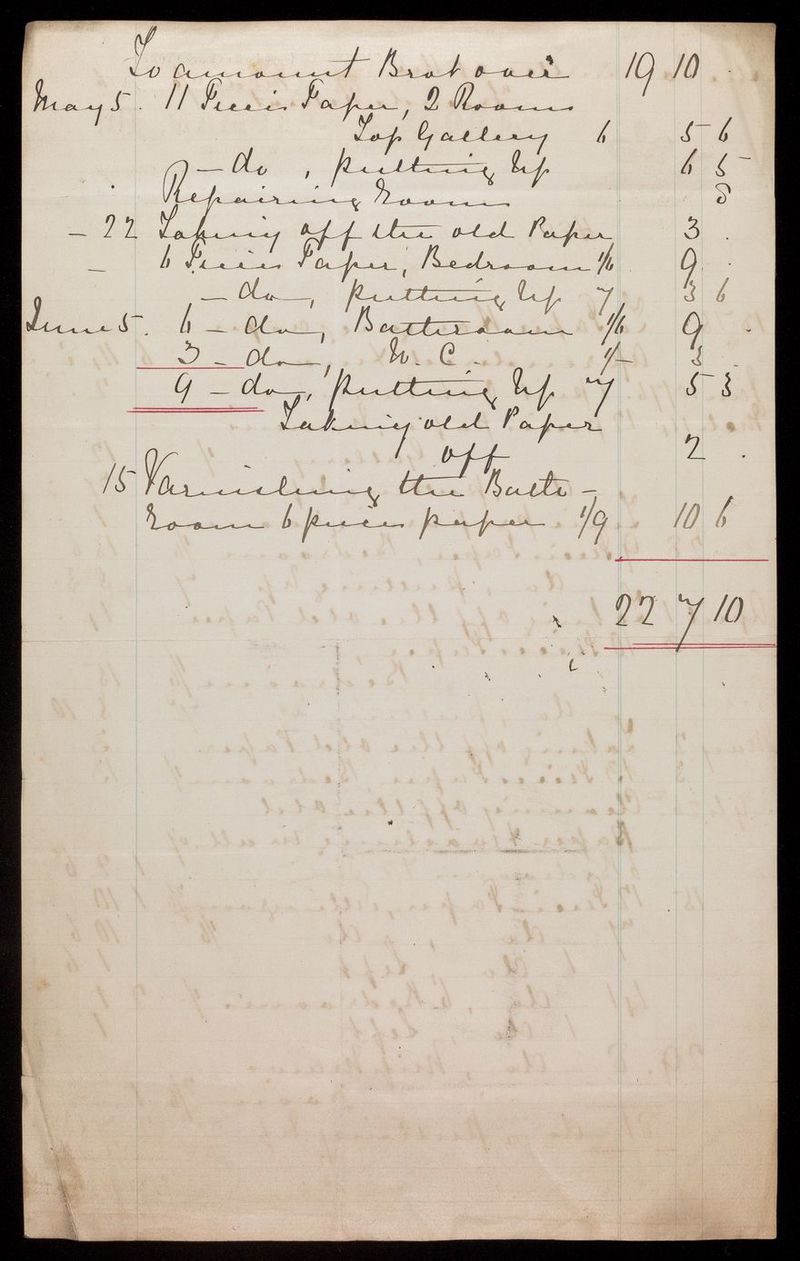 To amount Brot over 19 10 .
May 5. 11 Pieces Paper, 2 Rooms
Top Gallery 6 5 6
— do , putting Up 6 5
Repairing Rooms 5
— 22 Taking off the old Paper 3 .
— 6 Pieces Paper, Bedroom 1/6 9 .
— do —, putting Up 7 3 6
June 5. 6 — do —, Bathroom 1/6 9 .
3 — do —, W. C. 1/- 3 .
9 — do —, putting Up 7 5 3
Taking old Paper
off 2 .
15 Varnishing the Bath —
room 6 pieces paper 1/9 10 6
22 7 10